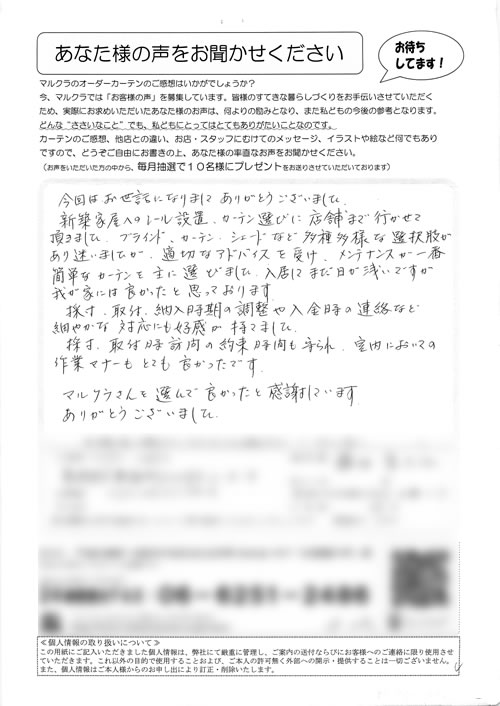 あなた様の声をお聞かせください
お待ち
してます！
マルクラのオーダーカーテンのご感想はいかがでしょうか？
今、マルクラでは「お客様の声」を募集しています。皆様のすてきな暮らしづくりをお手伝いさせていただく
ため、実際にお求めいただいたあなた様のお声は、何よりの励みとなり、また私どもの今後の参考となります。
どんな“ささいなこと”でも、私どもにとってはとてもありがたいことなのです。
カーテンのご感想、他店との違い、お店・スタッフにむけてのメッセージ、イラストや絵など何でもあり
ですので、どうぞご自由にお書きの上、あなた様の率直なお声をお聞かせください。
（お声をいただいた方の中から、毎月抽選で１０名様にプレゼントをお送りさせていただいております）
今回はお世話になりまして ありがとうございました。
新築家屋へのレール設置、カーテン選びに店舗まで行かせて
頂きました。ブラインド、カーテン、シェードなど多種多様な選択肢が
あり迷いましたが、適切なアドバイスを受け、メンテナンスが一番
簡単なカーテンを主に選びました。入居してまだ日が浅いですが
我が家には良かったと思っております。
採寸、取付、納入時期の調整や入金時の連絡など
細やかな対応にも好感が持てました。
採寸、取付時訪問の約束時間も守られ、室内においての
作業マナーもとても良かったです。
マルクラさんを選んで良かったと感謝しています。
ありがとうございました。
06-6251-2486
≪個人情報の取り扱いについて≫
この用紙にご記入いただきました個人情報は、弊社にて厳重に管理し、ご案内の送付ならびにお客様へのご連絡に限り使用させ
ていただきます。これ以外の目的で使用することおよび、ご本人の許可無く外部への開示・提供することは一切ございません。
また、個人情報はご本人様からのお申し出により訂正・削除いたします。